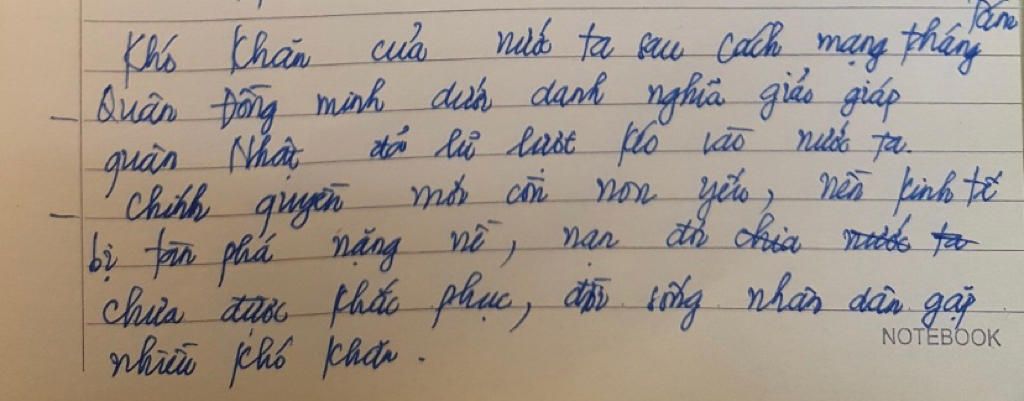 Khó khăn của nước ta sau cách mạng tháng Tám
- Quân Đồng minh dưới danh nghĩa giáo giáp
quân Nhật đã lũ lượt kéo vào nước ta.
- Chính quyền mới còn non yếu, nền kinh tế
bị tàn phá nặng nề, nạn đói chia nước ta
chưa được khắc phục, đời sống nhân dân gặp
nhiều khó khăn.
NOTEBOOK